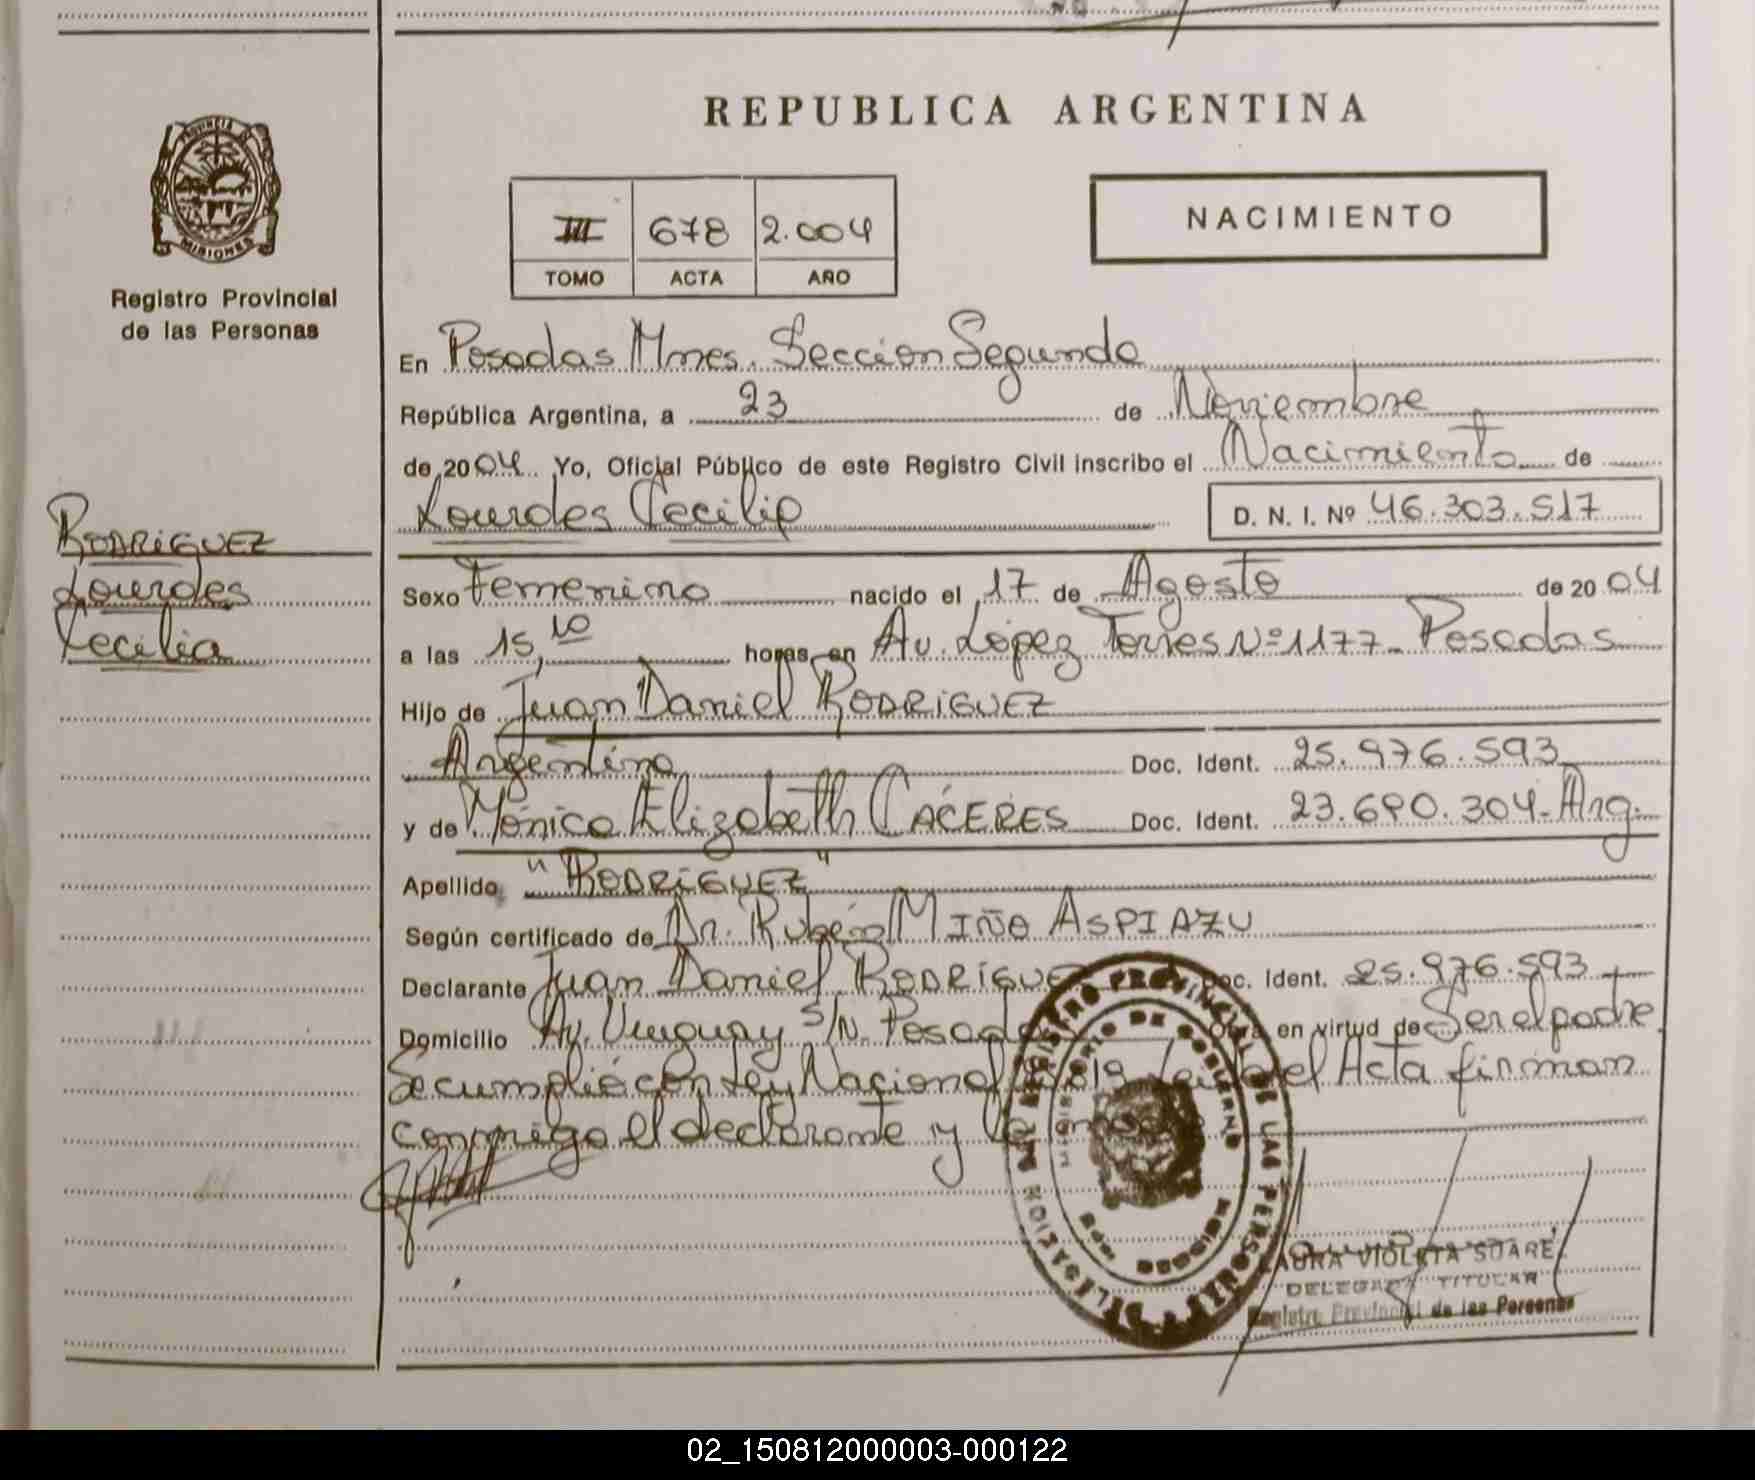 REPUBLICA ARGENTINA
PROVINCIA DE
MISIONES
Registro Provincial
de las Personas
III 678 2.004
TOMO ACTA AÑO
NACIMIENTO
En Posadas Mnes. Sección Segunda
República Argentina, a 23 de Noviembre
de 2004 Yo, Oficial Público de este Registro Civil inscribo el Nacimiento de
Lourdes Cecilia D. N. I. Nº 46.303.517
RODRIGUEZ
Lourdes
Cecilia
Sexo Femenino nacido el 17 de Agosto de 2004
a las 15,10 horas, en Av. López Torres Nº 1177- Posadas
Hijo de Juan Daniel RODRIGUEZ
Argentino Doc. Ident. 25.976.593
y de Mónica Elizabeth CÁCERES Doc. Ident. 23.690.304- Arg.
Apellido "RODRIGUEZ"
Según certificado de Dr. Rubén MIÑO ASPIAZU
Declarante Juan Daniel RODRIGUEZ Doc. Ident. 25.976.593
Domicilio Av. Uruguay S/N. Posadas Obra en virtud de Ser el padre
Se cumplió con Ley Nacional Leída el Acta firman
conmigo el declarante y la
REGISTRO PROVINCIAL DE LAS PERSONAS
MINISTERIO DE GOBIERNO
LAURA VIOLETA SUAREZ
DELEGADA TITULAR
Registro Provincial de las Personas
02_150812000003-000122